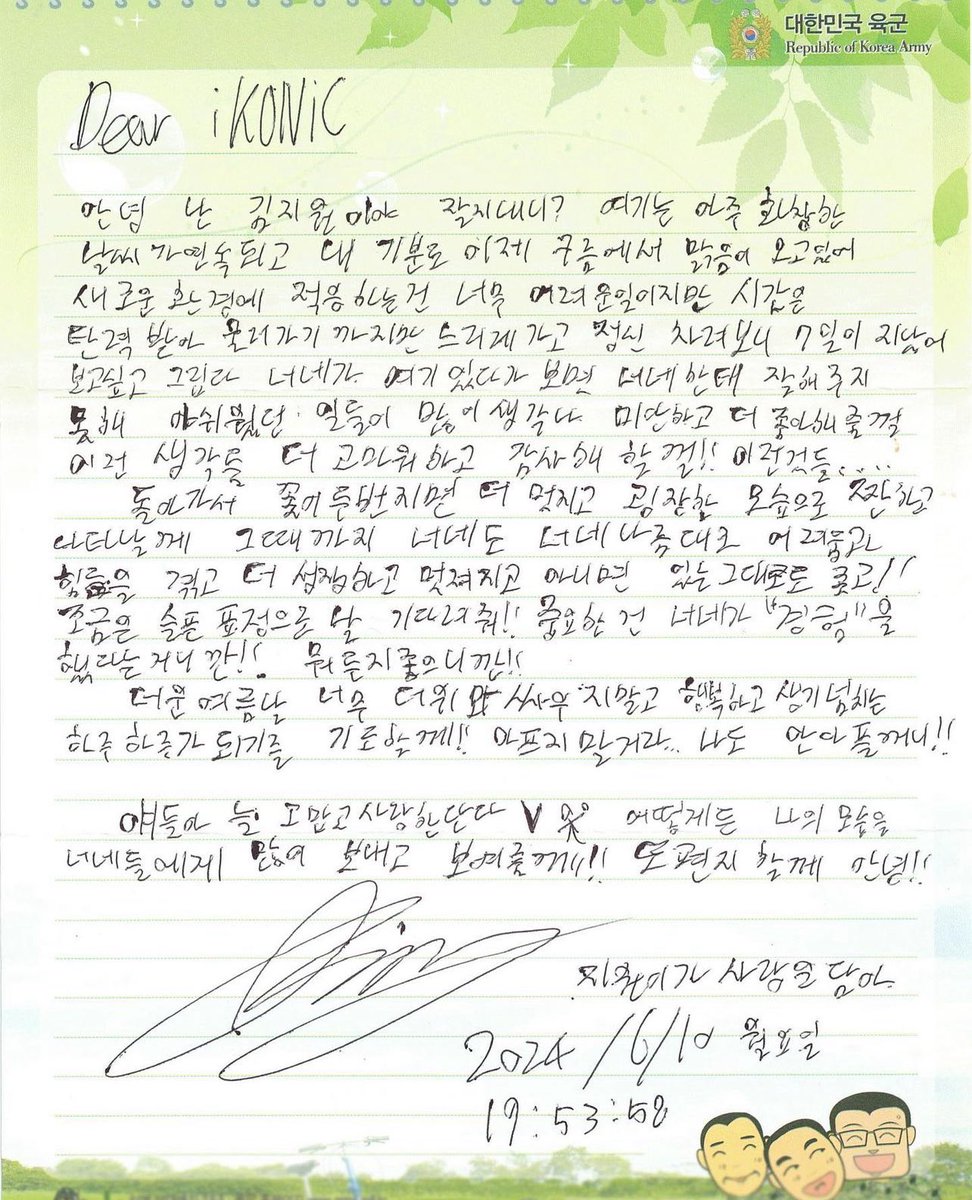 대한민국 육군
Republic of Korea Army
Dear iKONIC
안녕 난 김지원이야 잘지내니? 여기는 아주 화창한
날씨가연속되고 내 기분도 이제 구름에서 맑음이 오고있어
새로운 환경에 적응하는건 너무 어려운일이지만 시간은
탄력 받아 올러가기 까지만 느리게 가고 정신 차려보니 7일이 지났어
보고싶고 그립다 너네가 여기 있다가 보면 너네한태 잘해주지
못해 아쉬웠던 일들이 많이생각나 미안하고 더 좋아해줄껄
이런 생각들 더 고마워하고 감사해 할 껄!! 이런것들.....
돌아가서 꽃이두번지면 더 멋지고 굉장한 모습으로 짠하고
나타날께 그때까지 너네도 너네나름대로 어려움과
힘듦을 겪고 더 성장하고 멋져지고 아니면 있는그대로도 좋고!!
조금은 슬픈표정으로 날 기다려줘!! 중요한 건 너네가 "경험"을
했다는거니깐!! 뭐든지좋으니깐!!
더운여름날 너무 더위와 싸우지말고 행복하고 생기넘치는
하루하루가 되기를 기도할께!! 아프지말거라.. 나도 안아플꺼니!!
얘들아 늘 고맙고사랑한단다 V 못 어떻게든 나의 모습을
너네들에게 많이 보내고 보여줄께!!! 또편지할께 안녕!!
지원이가 사랑을담아
2024/6/10 월요일
19:53:58